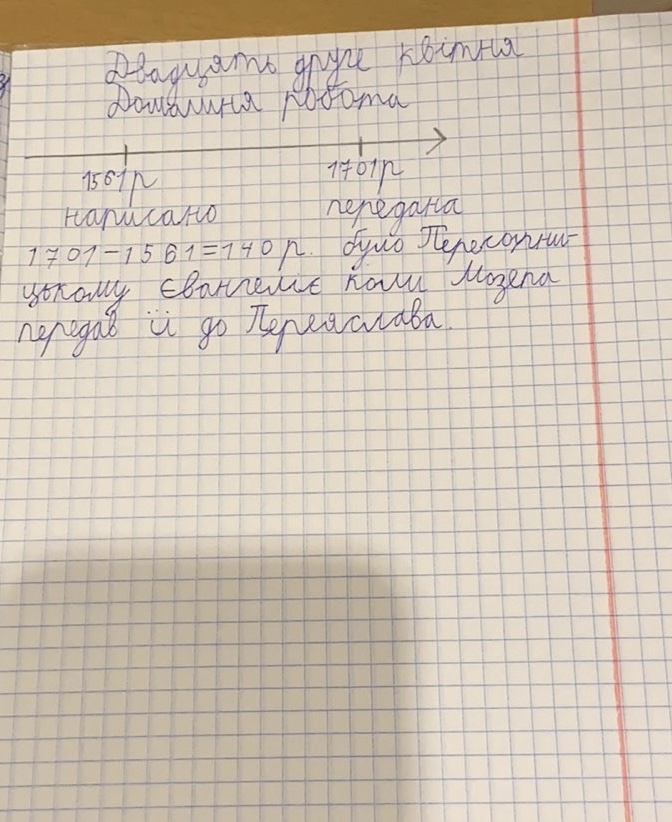 Двадцять друге квітня
Домашня робота
1561р 1701р
написано передана
1701-1561=140 р. було Пересопни-
цькому Євангеліє коли Мазепа
передав її до Переяслава.